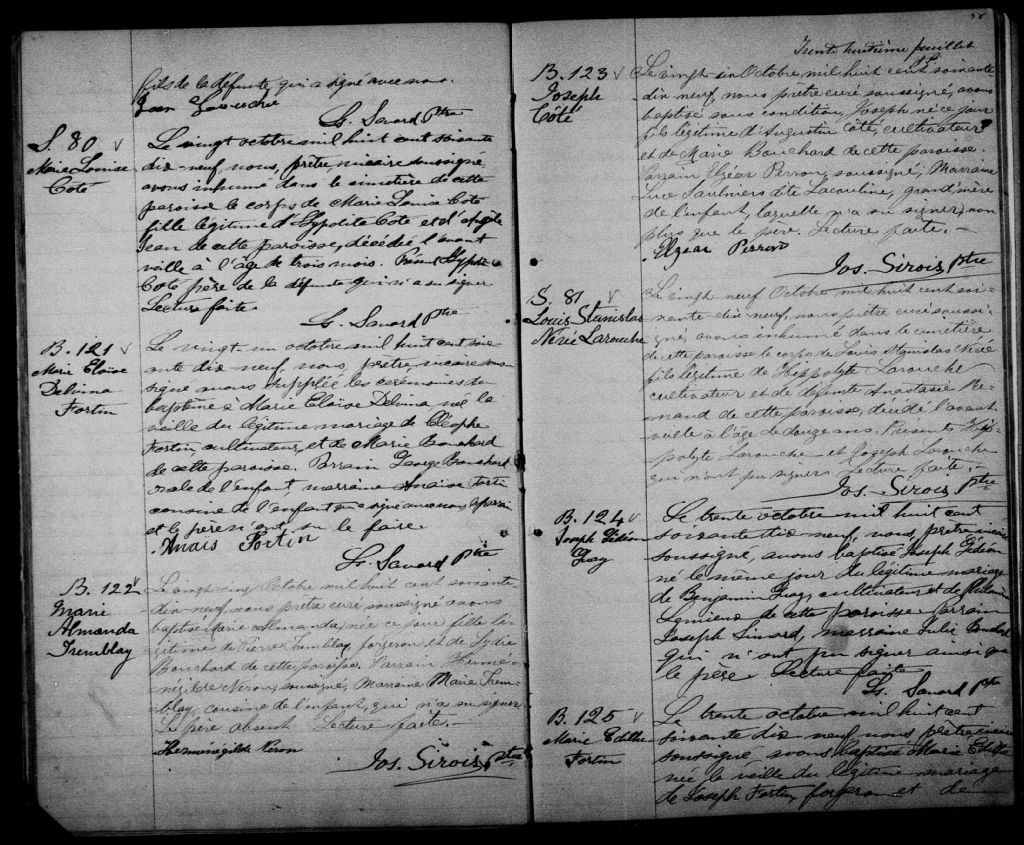 fils de la défunte, qui a signé avec nous.
Jean Larouche
L. Savard Ptre
S. 80
Marie Louise
Coté
Le vingt octobre mil huit cent soixante
dix-neuf, nous, prêtre, vicaire soussigné
avons inhumé dans le cimetière de cette
paroisse le corps de Marie Louise Coté
fille légitime d'Hypolite Coté et d'
Jean de cette paroisse, décédée l'avant
veille à l'âge de trois mois. Présent Hypolite
Coté père de la défunte qui n'a su signer
Lecture faite.
L. Savard Ptre
B. 121
Marie Eloïse
Delvina
Fortin
Le vingt un octobre mil huit cent soix-
ante dix neuf, nous, prêtre, vicaire sous-
signé avons supplée les cérémonies du
baptême à Marie Eloïse Delvina, née la
veille du légitime mariage de Cléophe
Fortin, cultivateur, et de Marie Bouchard
de cette paroisse. Parrain George Bouchard
oncle de l'enfant, marraine Anaïse Fortin
cousine de l'enfant qui a signé avec nous le parrain
et le père n'ont su le faire.
Anaïs Fortin
L. Savard Ptre
B. 122
Marie
Almanda
Tremblay
Le vingt cinq Octobre mil huit cent soixante
dix-neuf, nous prêtre curé soussigné avons
baptisé Marie Almanda, née ce jour fille lé-
gitime de Pierre Tremblay, forgeron et de Lydie
Bouchard de cette paroisse, Parrain Herme-
négilde Neron, soussigné, Marraine Marie Trem-
blay, cousine de l'enfant, qui n'a su signer
Le père absent Lecture faite.
Hermenigilde Neron
Jos. Sirois, Ptre
38
Trente huitième feuillet
B. 123
Joseph
Côté
Le vingt six Octobre, mil huit cent soixante
dix neuf, nous prêtre curé soussigné, avons
baptisé sous condition, Joseph né ce jour
fils légitime d'Augustin Côté, cultivateur
et de Marie Bouchard de cette paroisse.
Parrain Elzéar Perron, soussigné, Marraine
Luce Saulniers dite Lacouline, grand'mère
de l'enfant, laquelle n'a su signer, non
plus que le père. Lecture faite.
Elzear Perron
Jos. Sirois Ptre
S. 81
Louis Stanislas
Nérée Larouche
Le vingt neuf Octobre mil huit cent soi-
xante-dix-neuf, nous prêtre curé soussi-
gné, avons inhumé dans le cimetière
de cette paroisse le corps de Louis Stanislas Nérée
fils légitime de Hippolyte Larouche
cultivateur et de défunte Anastasie
de cette paroisse, décédé l'avant
veille à l'âge de douze ans. Présents Hip-
polyte Larouche et Joseph Larouche
qui n'ont pu signer. Lecture faite.
Jos. Sirois, Ptre
B. 124
Joseph Gédéon
Gray
Le trente octobre mil huit cent
soixante dix neuf, nous, prêtre vicaire
soussigné, avons baptisé Joseph Gédéon
né le même jour du légitime mariage
de Benjamin Gray, cultivateur et de
Lemieux de cette paroisse Parrain
Joseph Simard, marraine Julie Bouchard
qui n'ont pu signer ainsi que
le père Lecture faite
L. Savard Ptre
B. 125
Marie Edithe
Fortin
Le trente octobre mil huit cent
soixante dix neuf, nous, prêtre vicaire
soussigné avons baptisé Marie Edithe
née la veille du légitime mariage
de Joseph Fortin, forgeron et de